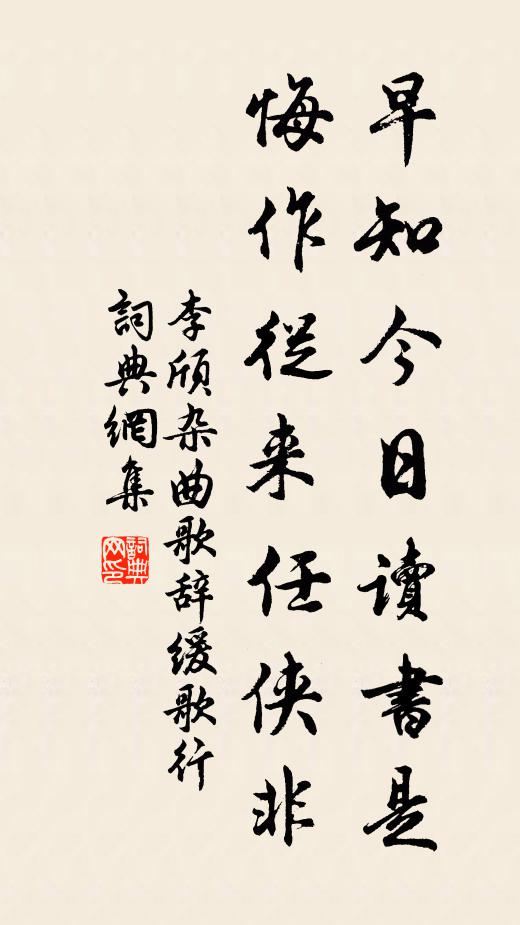 早知今日讀書是
悔作從来任侠非
李颀杂曲歌辞缓歌行
詞典網集
詞典
网印